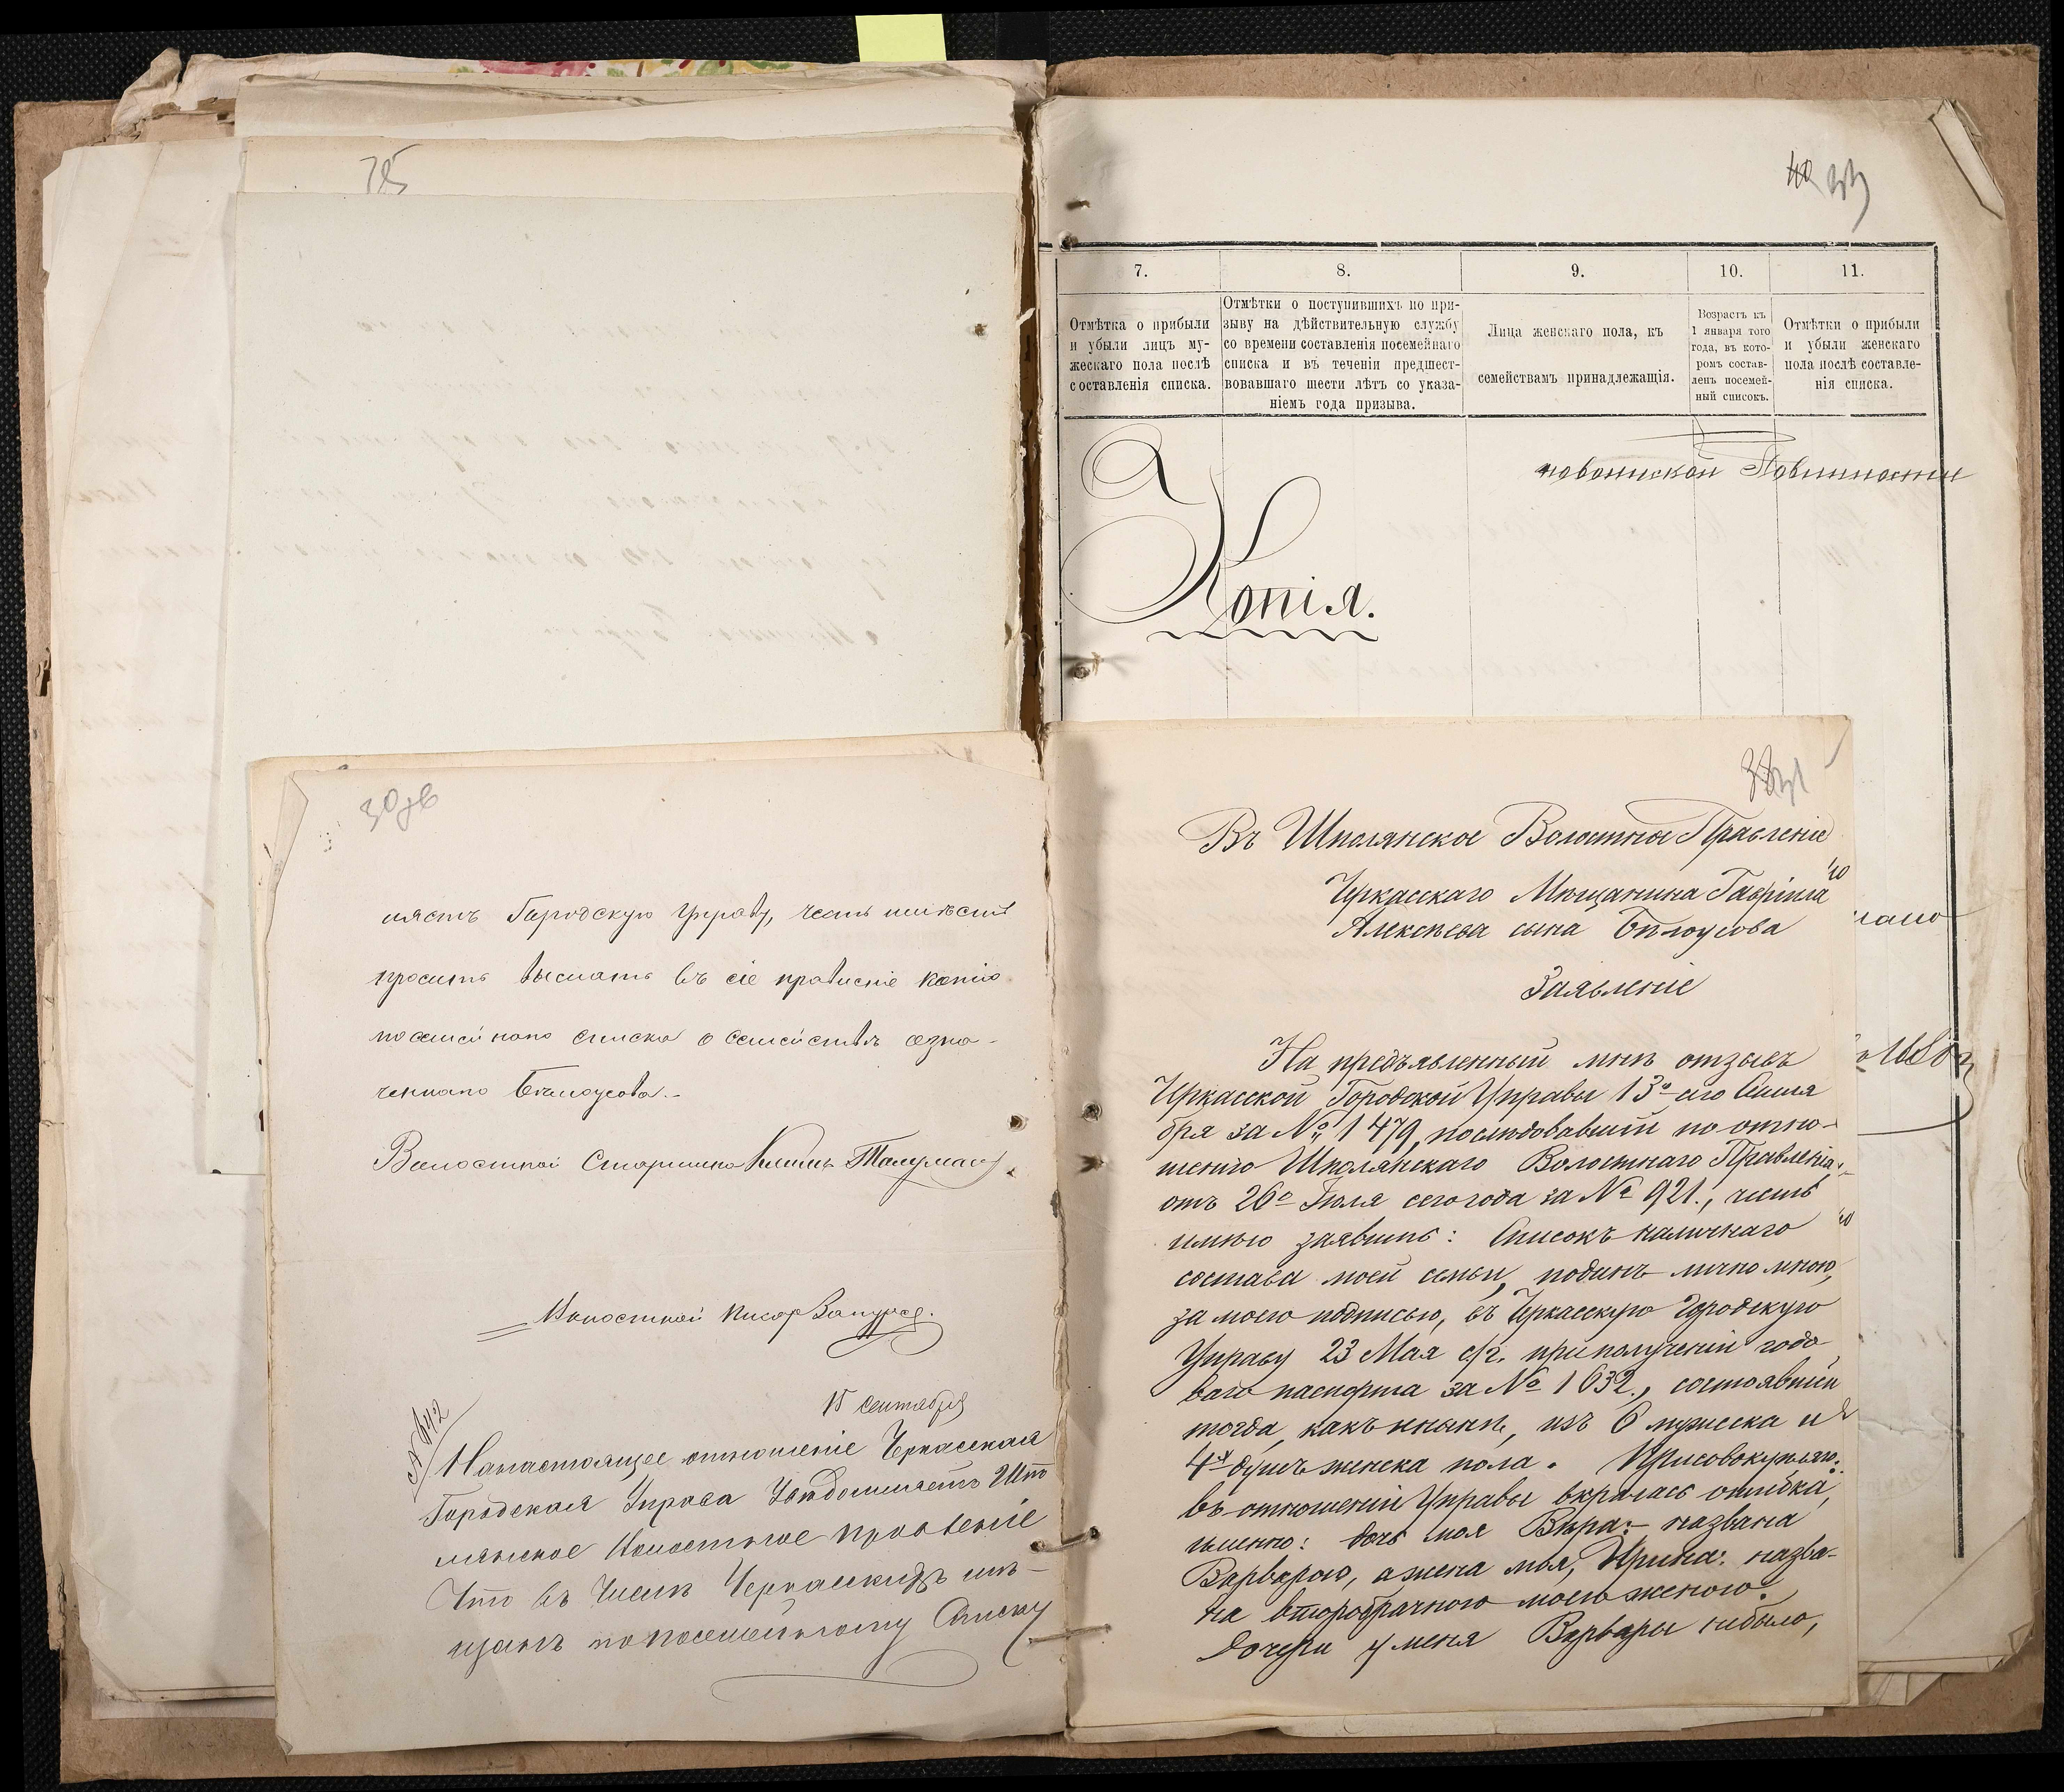 75
30 об
ляетъ Городскую Управу, честь имѣетъ
просить выслать въ сіе правленіе копію
посемейнаго списка о семействѣ озна-
ченнаго Бѣлоусова.-
Волостной Старшина
Волостной Писарь
15 Сентября
На настоящее отношеніе Черкасская
Городская Управа Увѣдомляетъ Шпо
лянское Волостное правленіе
Что въ числѣ Черкасскихъ мѣ-
щанъ по посемейному Списку
40
7.
8.
9.
10.
11.
Отмѣтка о прибыли
и убыли лицъ му-
жескаго пола послѣ
составленія списка.
Отмѣтки о поступившихъ по при-
зыву на дѣйствительную службу
со времени составленія посемейнаго
списка и въ теченіи предшест-
вовавшаго шести лѣтъ со указа-
ніемъ года призыва.
Лица женскаго пола, къ
семействамъ принадлежащія.
Возрастъ къ
1 января того
года, въ кото-
ромъ состав-
ленъ посемей-
ный списокъ.
Отмѣтки о прибыли
и убыли женскаго
пола послѣ составле-
нія списка.
повоинской Повинности
Копія.
31
Въ Шполянское Волостное Правленіе
Черкасскаго Мѣщанина Гавріила
Алексѣева сына Бѣлоусова
Заявленіе
На предъявленный мнѣ отзывъ
Черкасской Городской Управы 13º сего Сентя
бря за № 1479, послѣдовавшій по отно-
шенію Шполянскаго Волостнаго Правленія
отъ 26º Іюля сего года за № 921., честь
имѣю заявить: Списокъ наличнаго
состава моей семьи, поданъ лично мною,
за моею подписью, въ Черкасскую Городскую
Управу 23 Мая с/г. при полученіи годо
ваго паспорта за № 1632., состоявшій
тогда, какъ и нынѣ, изъ 6 мужеска и
4х душъ женска пола. Присовокупляю:
въ отношеніи Управы вкралась ошибка,
именно: дочь моя Вѣра:- названа
Варварою, а жена моя, Ирина: назва-
на второбрачною моею женою.
Дочери у меня Варвары небыло,